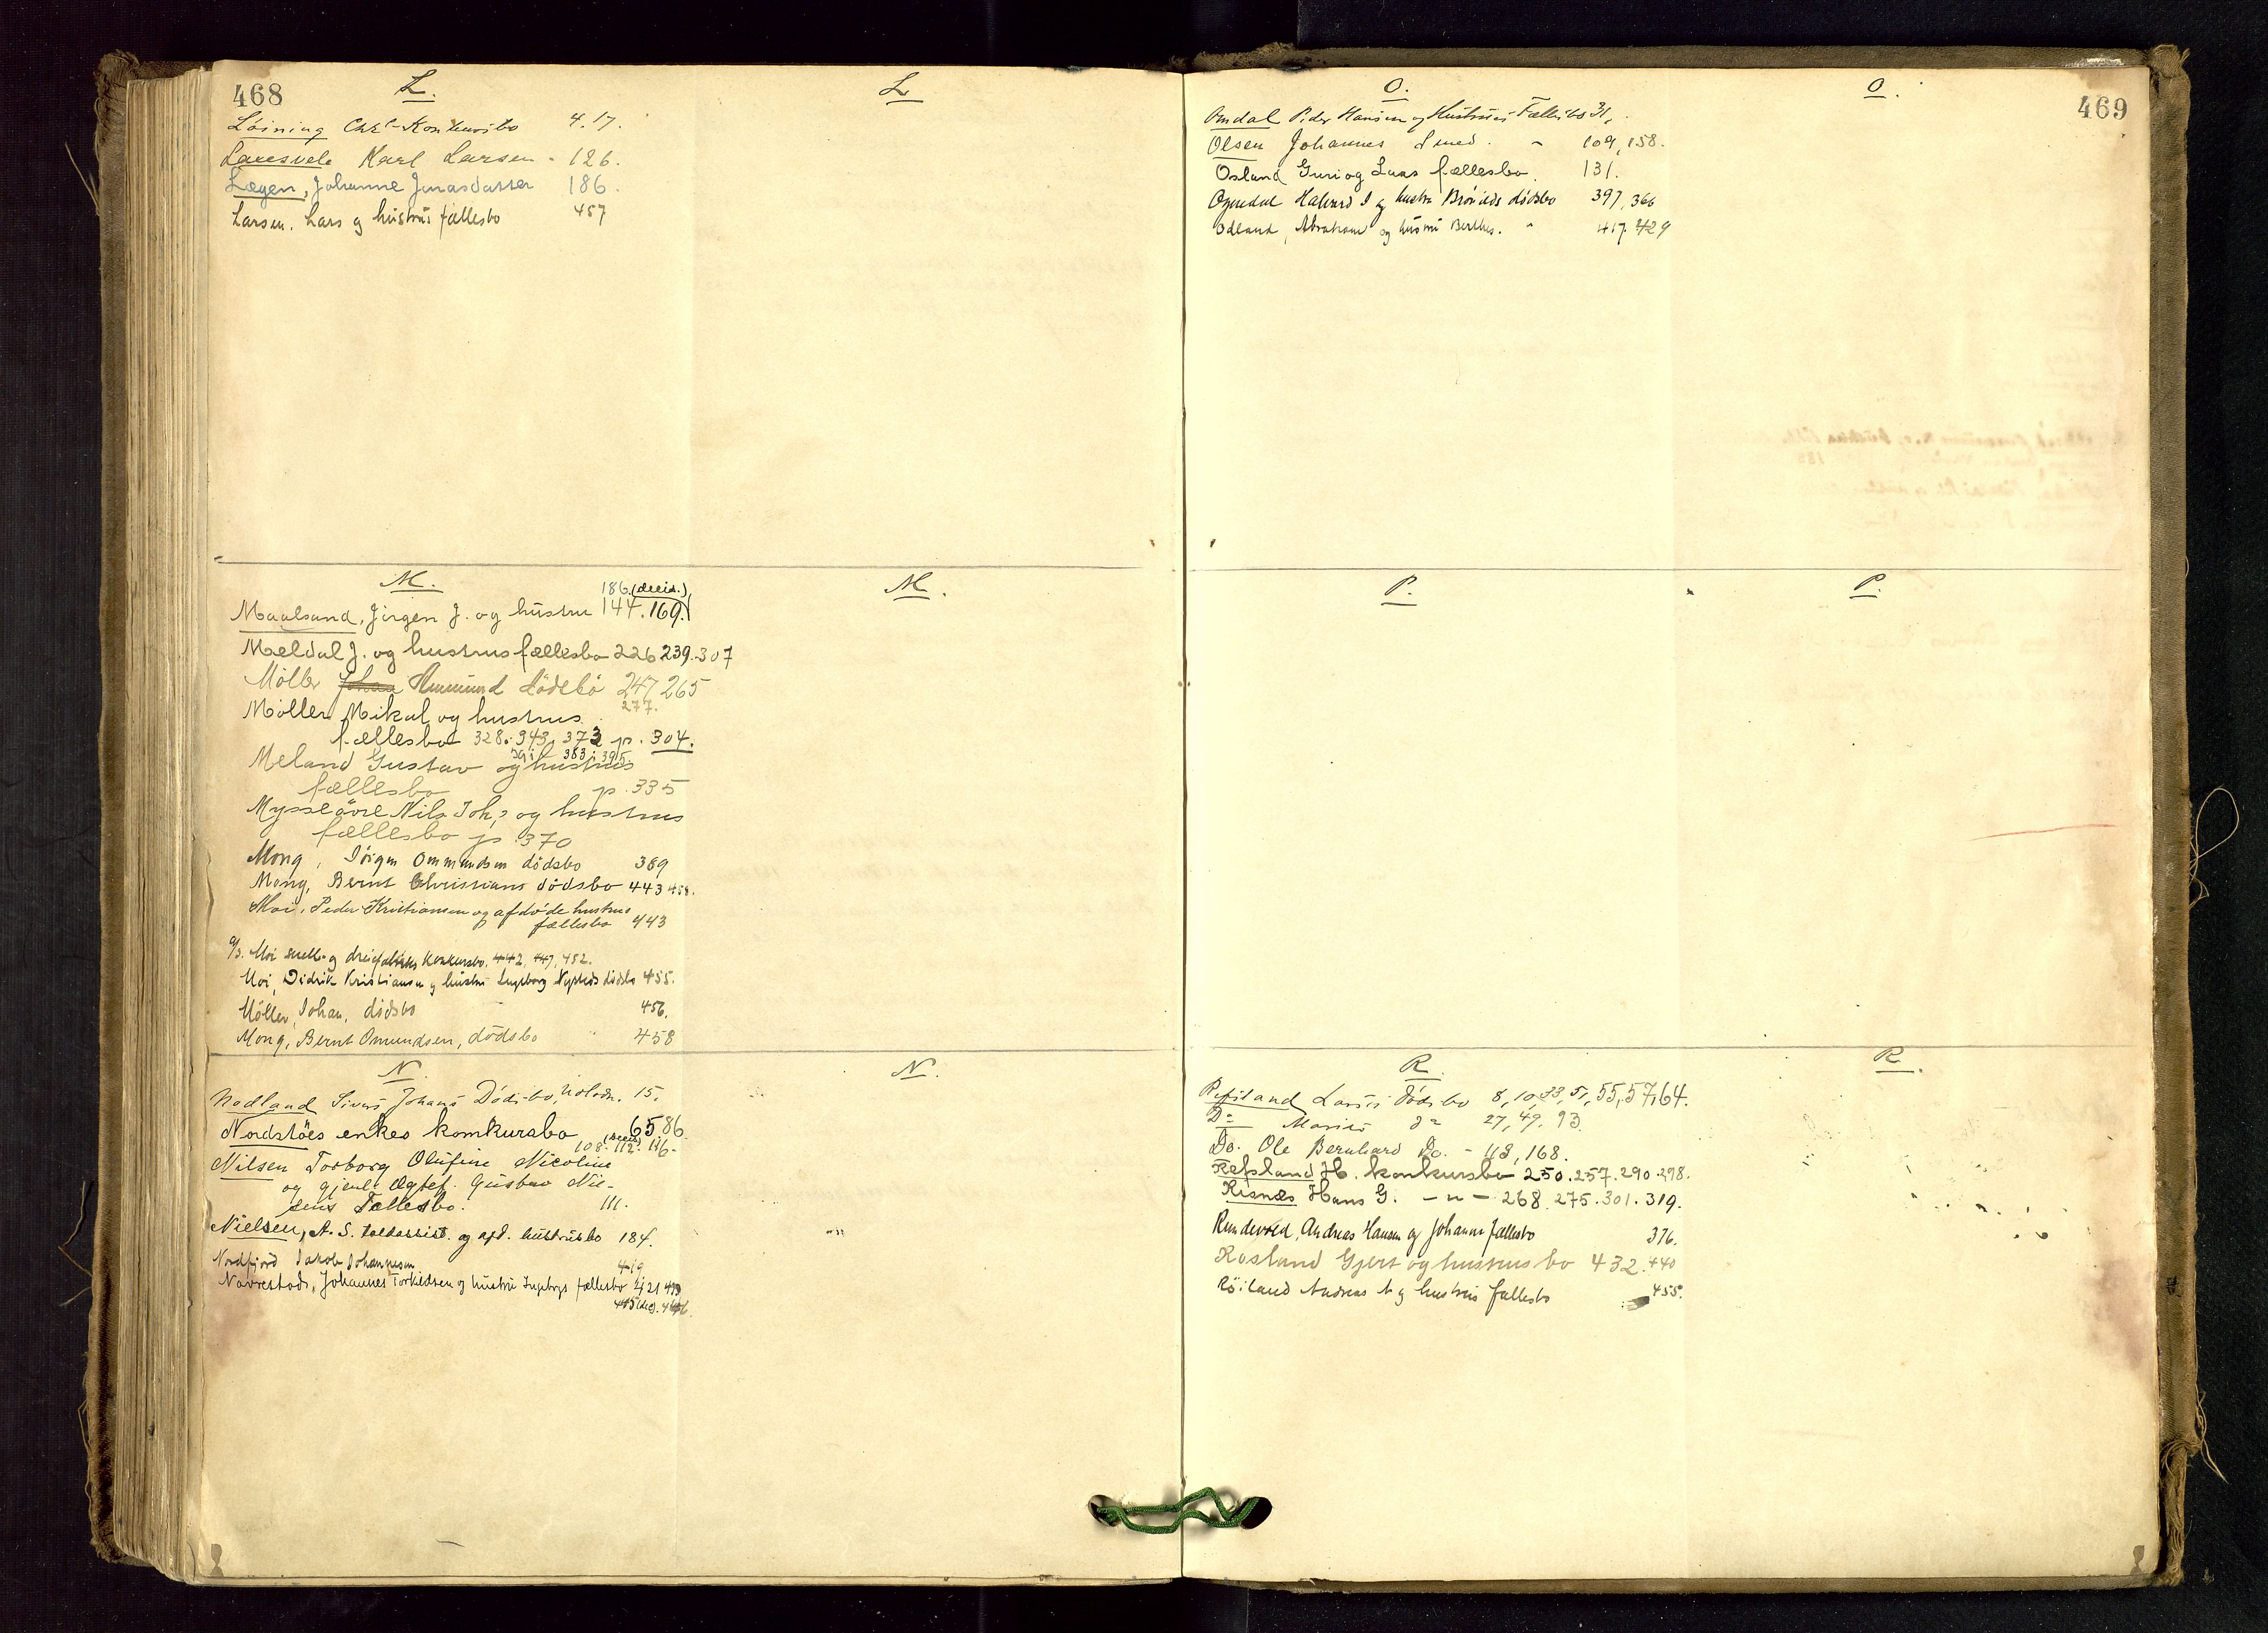 468
L.
L
Löining Chr. Konkursbo 4.17.
Laxesvele Karl Larsen - 126.
Lægen, Johanne Jonasdatter 186.
Larsen, Lars og hústrús fællesbo 457
M.
M.
186 (decid.)
Maalsand, Jörgen J. og hústru 144. 169.
Meldal J. og hustrus fællesbo 226 239. 307
Möller Johan Ammund dödsbo 247 265
277.
Möller Mikal og hustrus
fællesbo 328. 343, 373 p. 304.
383. 395.
Meland Gustav og hustrus
fællesbo p. 335
Mysseöre Nils Joh.s og hustrus
fællesbo p. 370
Mong, Jörgen Ommundsen dödsbo 389
Mong, Bernt Christians dödsbo 443 458.
Moi, Peder Kristiansen og afdöde hustrus
fællesbo 443
a/s. Moi snelle og dreiefabriks konkursbo. 442, 447, 452.
Moi, Didrik Kristiansen og hústrú Ingeborg Nysteds dödsbo 455.
Möller, Johan, dödsbo 456.
Mong, Bernt Omundsen, dödsbo 458
N.
N.
Nodland Sivert Johans Dödsbo, 15.
Nordstöes enkes komkursbo 65 86
108. (decid) 112. 116.
Nilsen Torborg Olufine Nicoline
og gjenl. Ægtef. Gústav Nil-
sens Fællesbo. 111.
Nielsen, A. S. toldassist. og afd. hústrúsbo 184.
Nordfjord Jakob Johannesen 419
Navrestad, Johannes Torkildsen og hústrú Ingeborgs fællesbo 421 433
445 (dec). 446.
469
O.
O.
Omdal Peder Hansen og Hustrues Fællesbo 31,
Olsen Johannes Smed. " 109, 158.
Osland Guri og Lars fællesbo. 131.
Ognedal Halvard J og hustru Brönilds dödsbo 397, 366
Odland, Abraham og hústrú Berthes. " 417. 429
P.
P.
R.
R.
Refsland Lars's Dödsbo 8, 10, 33, 51, 55, 57, 64.
Do Maries do 27, 49, 93.
Do. Ole Bernhard Do. - 113, 168.
Refsland H. konkursbo 250. 257. 290. 298.
Risnæs Hans G. - " - 268. 275. 301. 319.
Rundevold, Andreas Hansen og Johanne fællesbo 376.
Rosland Gjert og hustrus bo 432. 440
Röiland Andreas A og hustrús fællesbo 455.